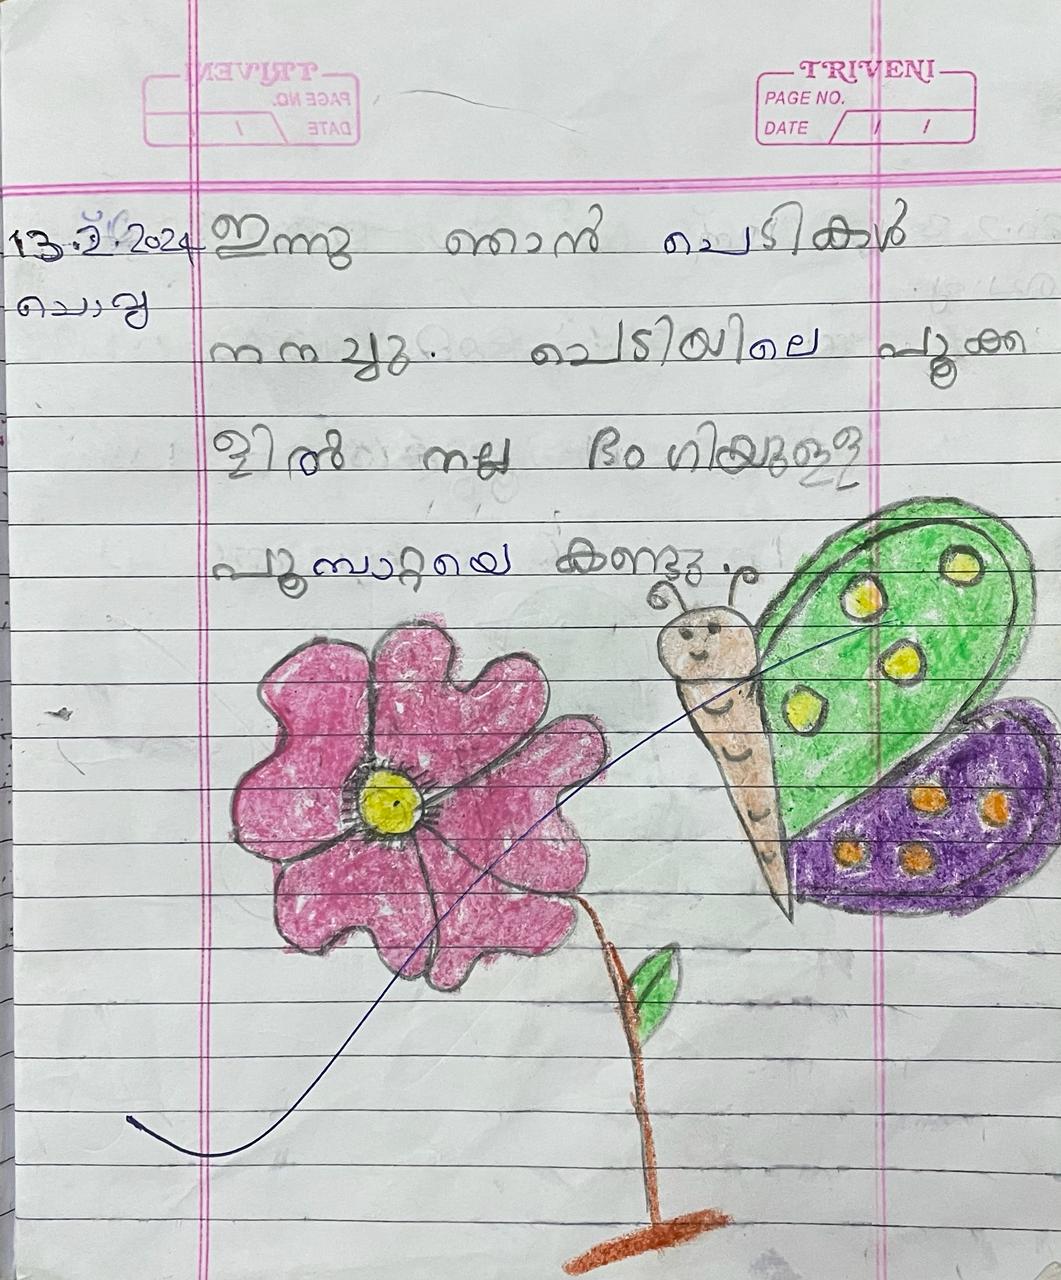 TRIVENI
PAGE NO.
DATE / /
13.2.2024 ഇന്നു ഞാൻ ചെടികൾ
ചൊവ്വ
നനച്ചു. ചെടിയിലെ പൂക്ക
ളിൽ നല്ല ഭംഗിയുള്ള
പൂമ്പാറ്റയെ കണ്ടു.